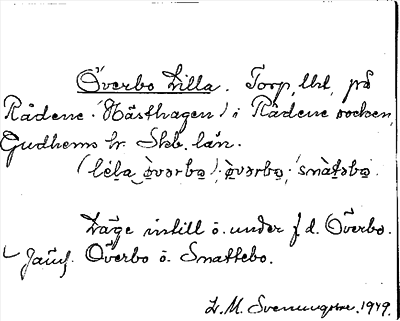 Överbo Lilla. Torp, lht, på
Rådene (Hästhagen) i Rådene socken,
Gudhems hr Skb. län.
(lı́la ò̀vərbo), ò̀vərbo, snàtəbo
Läge intill ö. under f.d. Överbo.
Jämf. Överbo o. Snattebo.
L. M. Svenungsson. 1949.